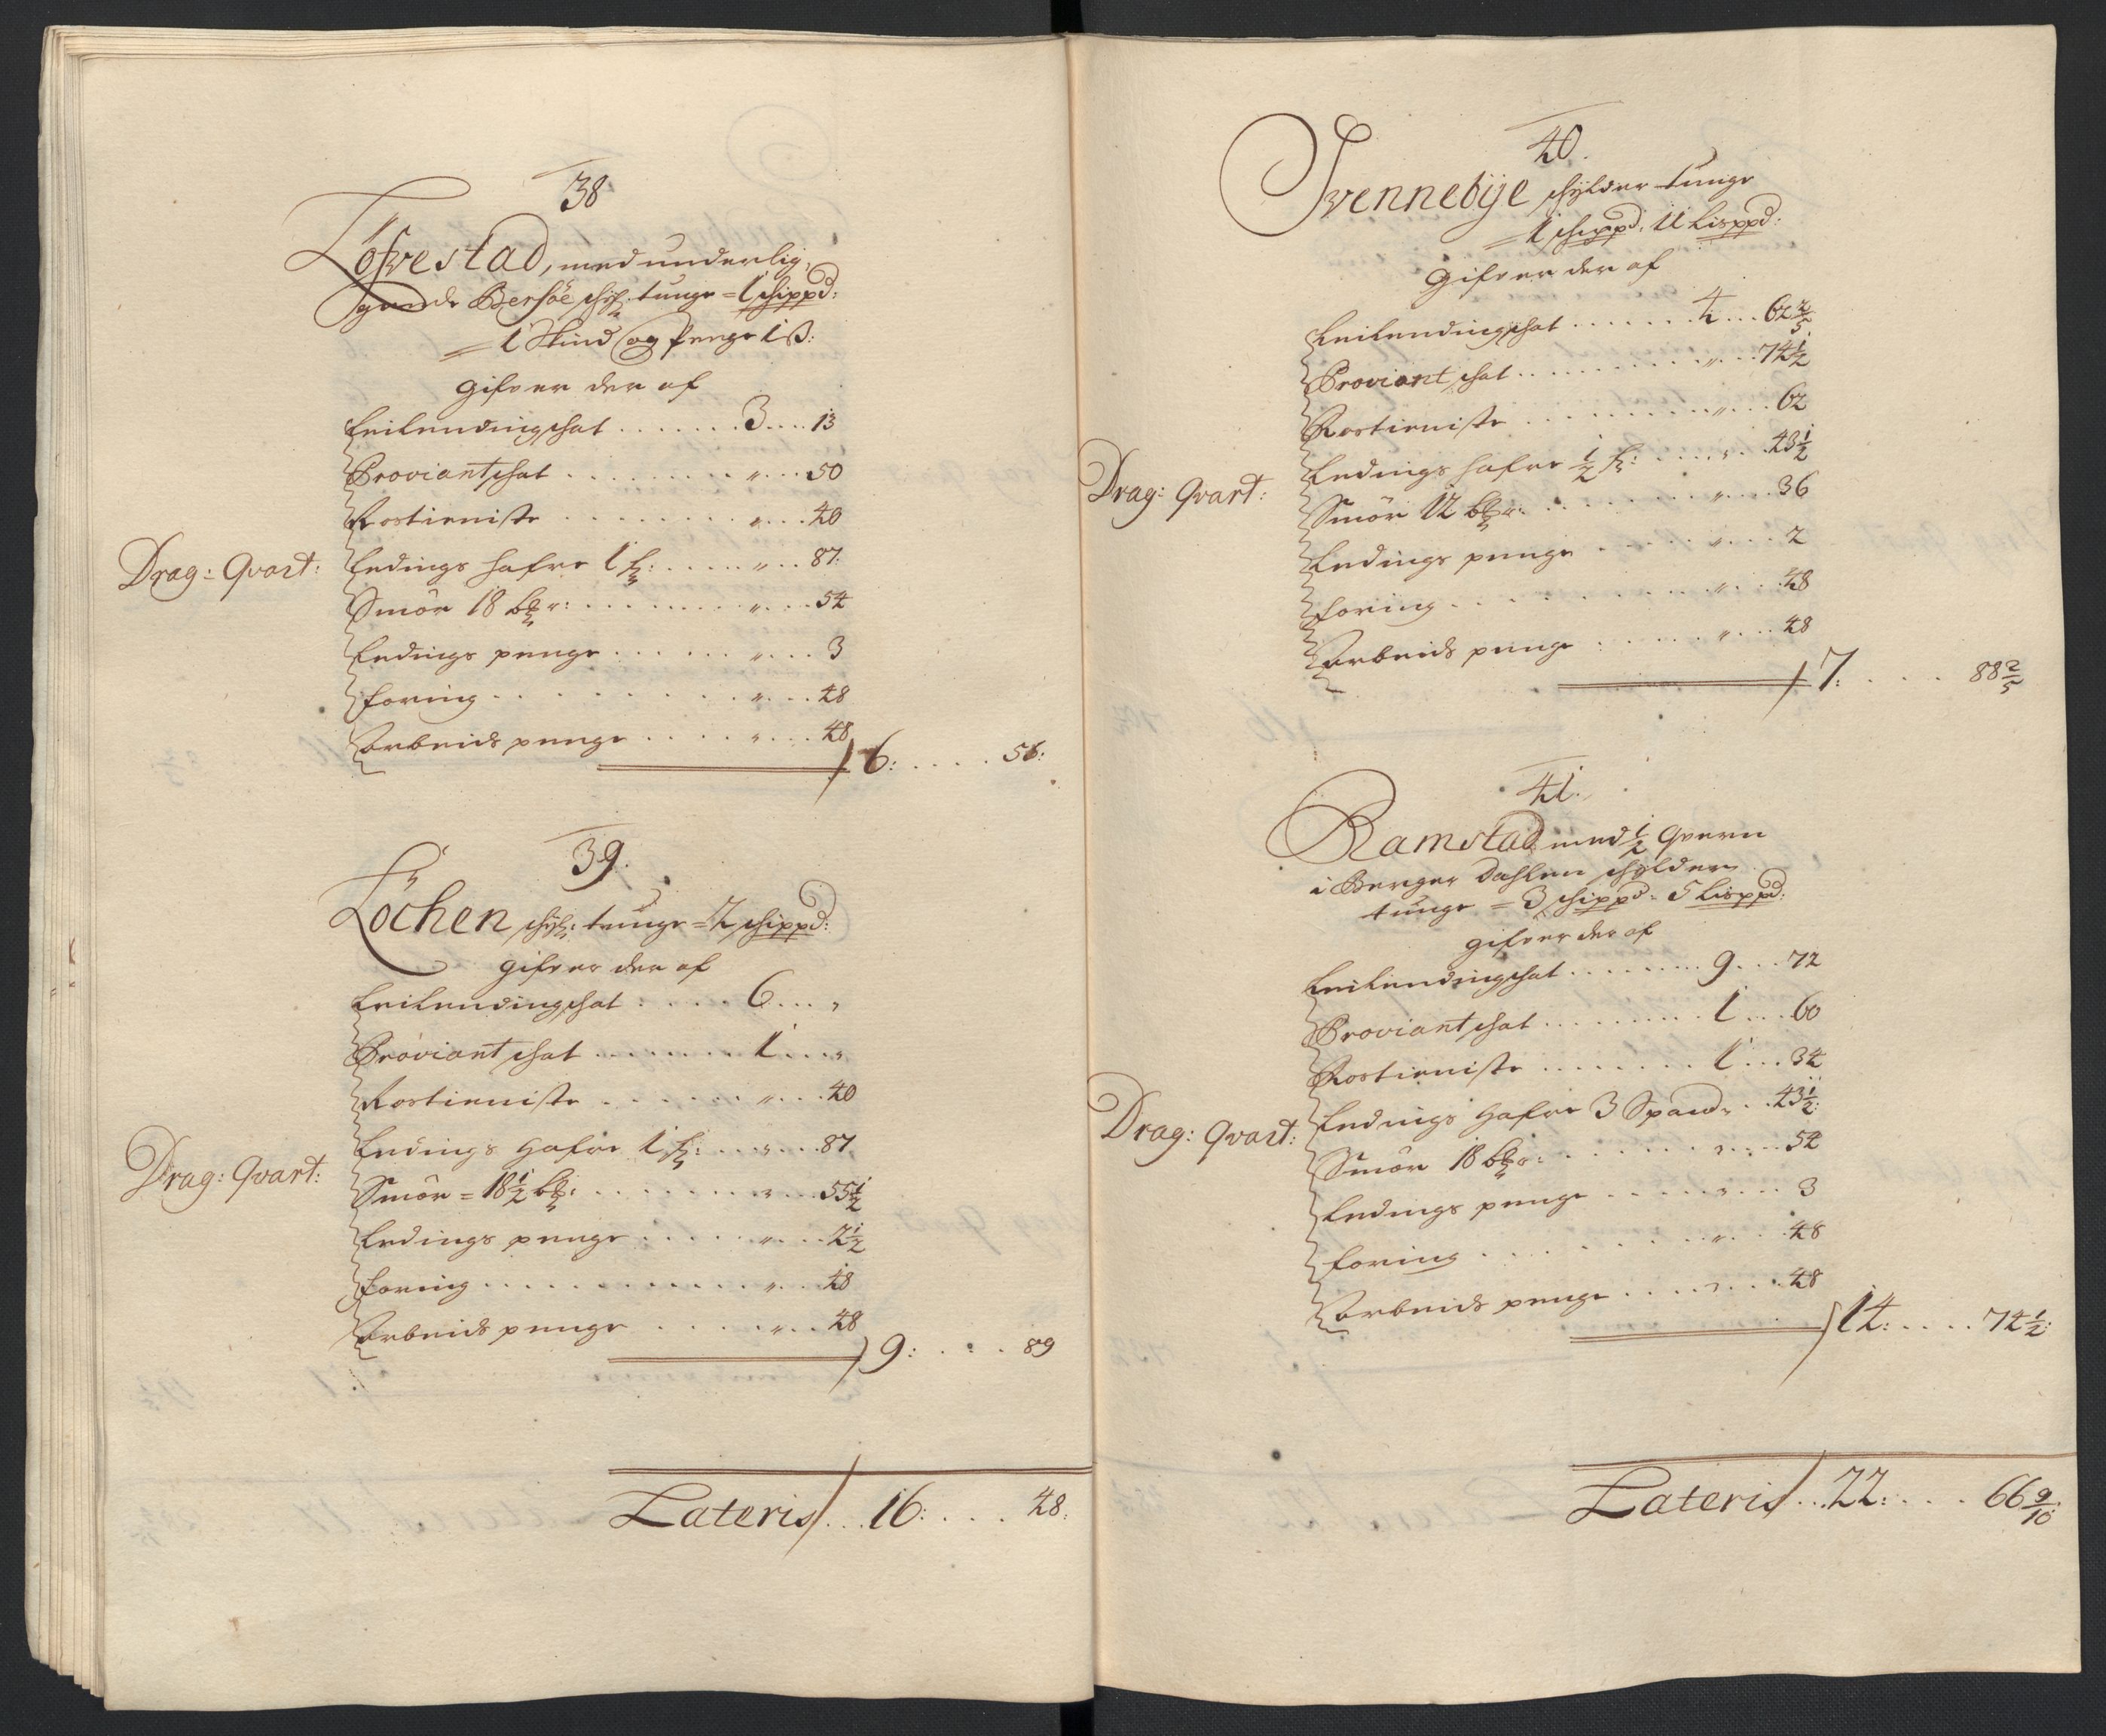 38
Löfvestad, med underlig,
gende Bersöe schÿl: tunge = 1 schippd:
= 1 Skind og Penge 1 ß:
gifver der af
Leilendingschat . . . . . . . 3 . . . . 13
Proviantschat . . . . . . . . „ . . . 50
Rostieniste . . . . . . . . „ . . . 40
Drag: Qvart: Ledings hafre 1 h: . . . . . „ . . 87:
Smör 18 b: . . . . . . . . „ . . . 54
Ledings penge . . . . . . „ . . . 3
foring . . . . . . . . . . „ . . . 48
Arbeids penge . . . . „ . . . 48
6: . . . . 56:
39.
Löchen schÿl: tunge = 2 schippd:
gifver der af
Leilendingschat : . . . . 6 . . . „
Proviantschat . . . . . . . 1 . . . „
Rostieniste . . . . . . „ . . . 40
Drag: Qvart: Ledings Hafre 1 h: . . . „ . . . 87
Smör = 18 1/2 b: . . . . . . . „ . . . 55 1/2
Ledings penge . . . . . „ . . . 2 1/2
foring . . . . . . . . . . „ . . 48
Arbeids penge . . . . „ . . 48
9: . . : . 89
Lateris . . . 16: . . . . 48:
40.
Svennebÿe schÿlder tunge
= 1 schippd: 11 Lisppd:
gifver der af
Leilendingschat . . . . . . . 4 . . . 62 2/5
Proviantschat . . . . . . . . . „ . . . 74 1/2
Rostieniste . . . . . . . . „ . . . 62
Drag: Qvart: Ledings hafre 1/2 h: . . . . „ . . 43 1/2
Smör 12 b: . . . . . . . . „ . . . 36
Ledings penge . . . . . „ . . . 2
foring . . . . . . . . . „ . . . 48
Arbeids penge . . . . . „ . . . 48
7: . . . . 88 2/5
41.
Ramstad med 1/2 Qvern
i Berger Dahlen schÿlder
tunge = 3 schippd: 5 Lisppd:
gifver der af
Leilendingschat . . . . . . . . 9 . . . 72
Proviantschat . . . . . . . . . 1 . . . 60
Rostieniste . . . . . . . . 1 . . . 34
Drag: Qvart: Ledings Hafre 3 Spand „ . . 43 1/2:
Smör 18 b: . . . . . . . „ . . . 54
Ledings penge . . . . . „ . . . 3
foring . . . . . . . . . „ . . . 48
Arbeids penge . . . . „ . . . 48
14: . . . . 74 1/2:
Lateris . . . 22: . . . . 66 9/10: